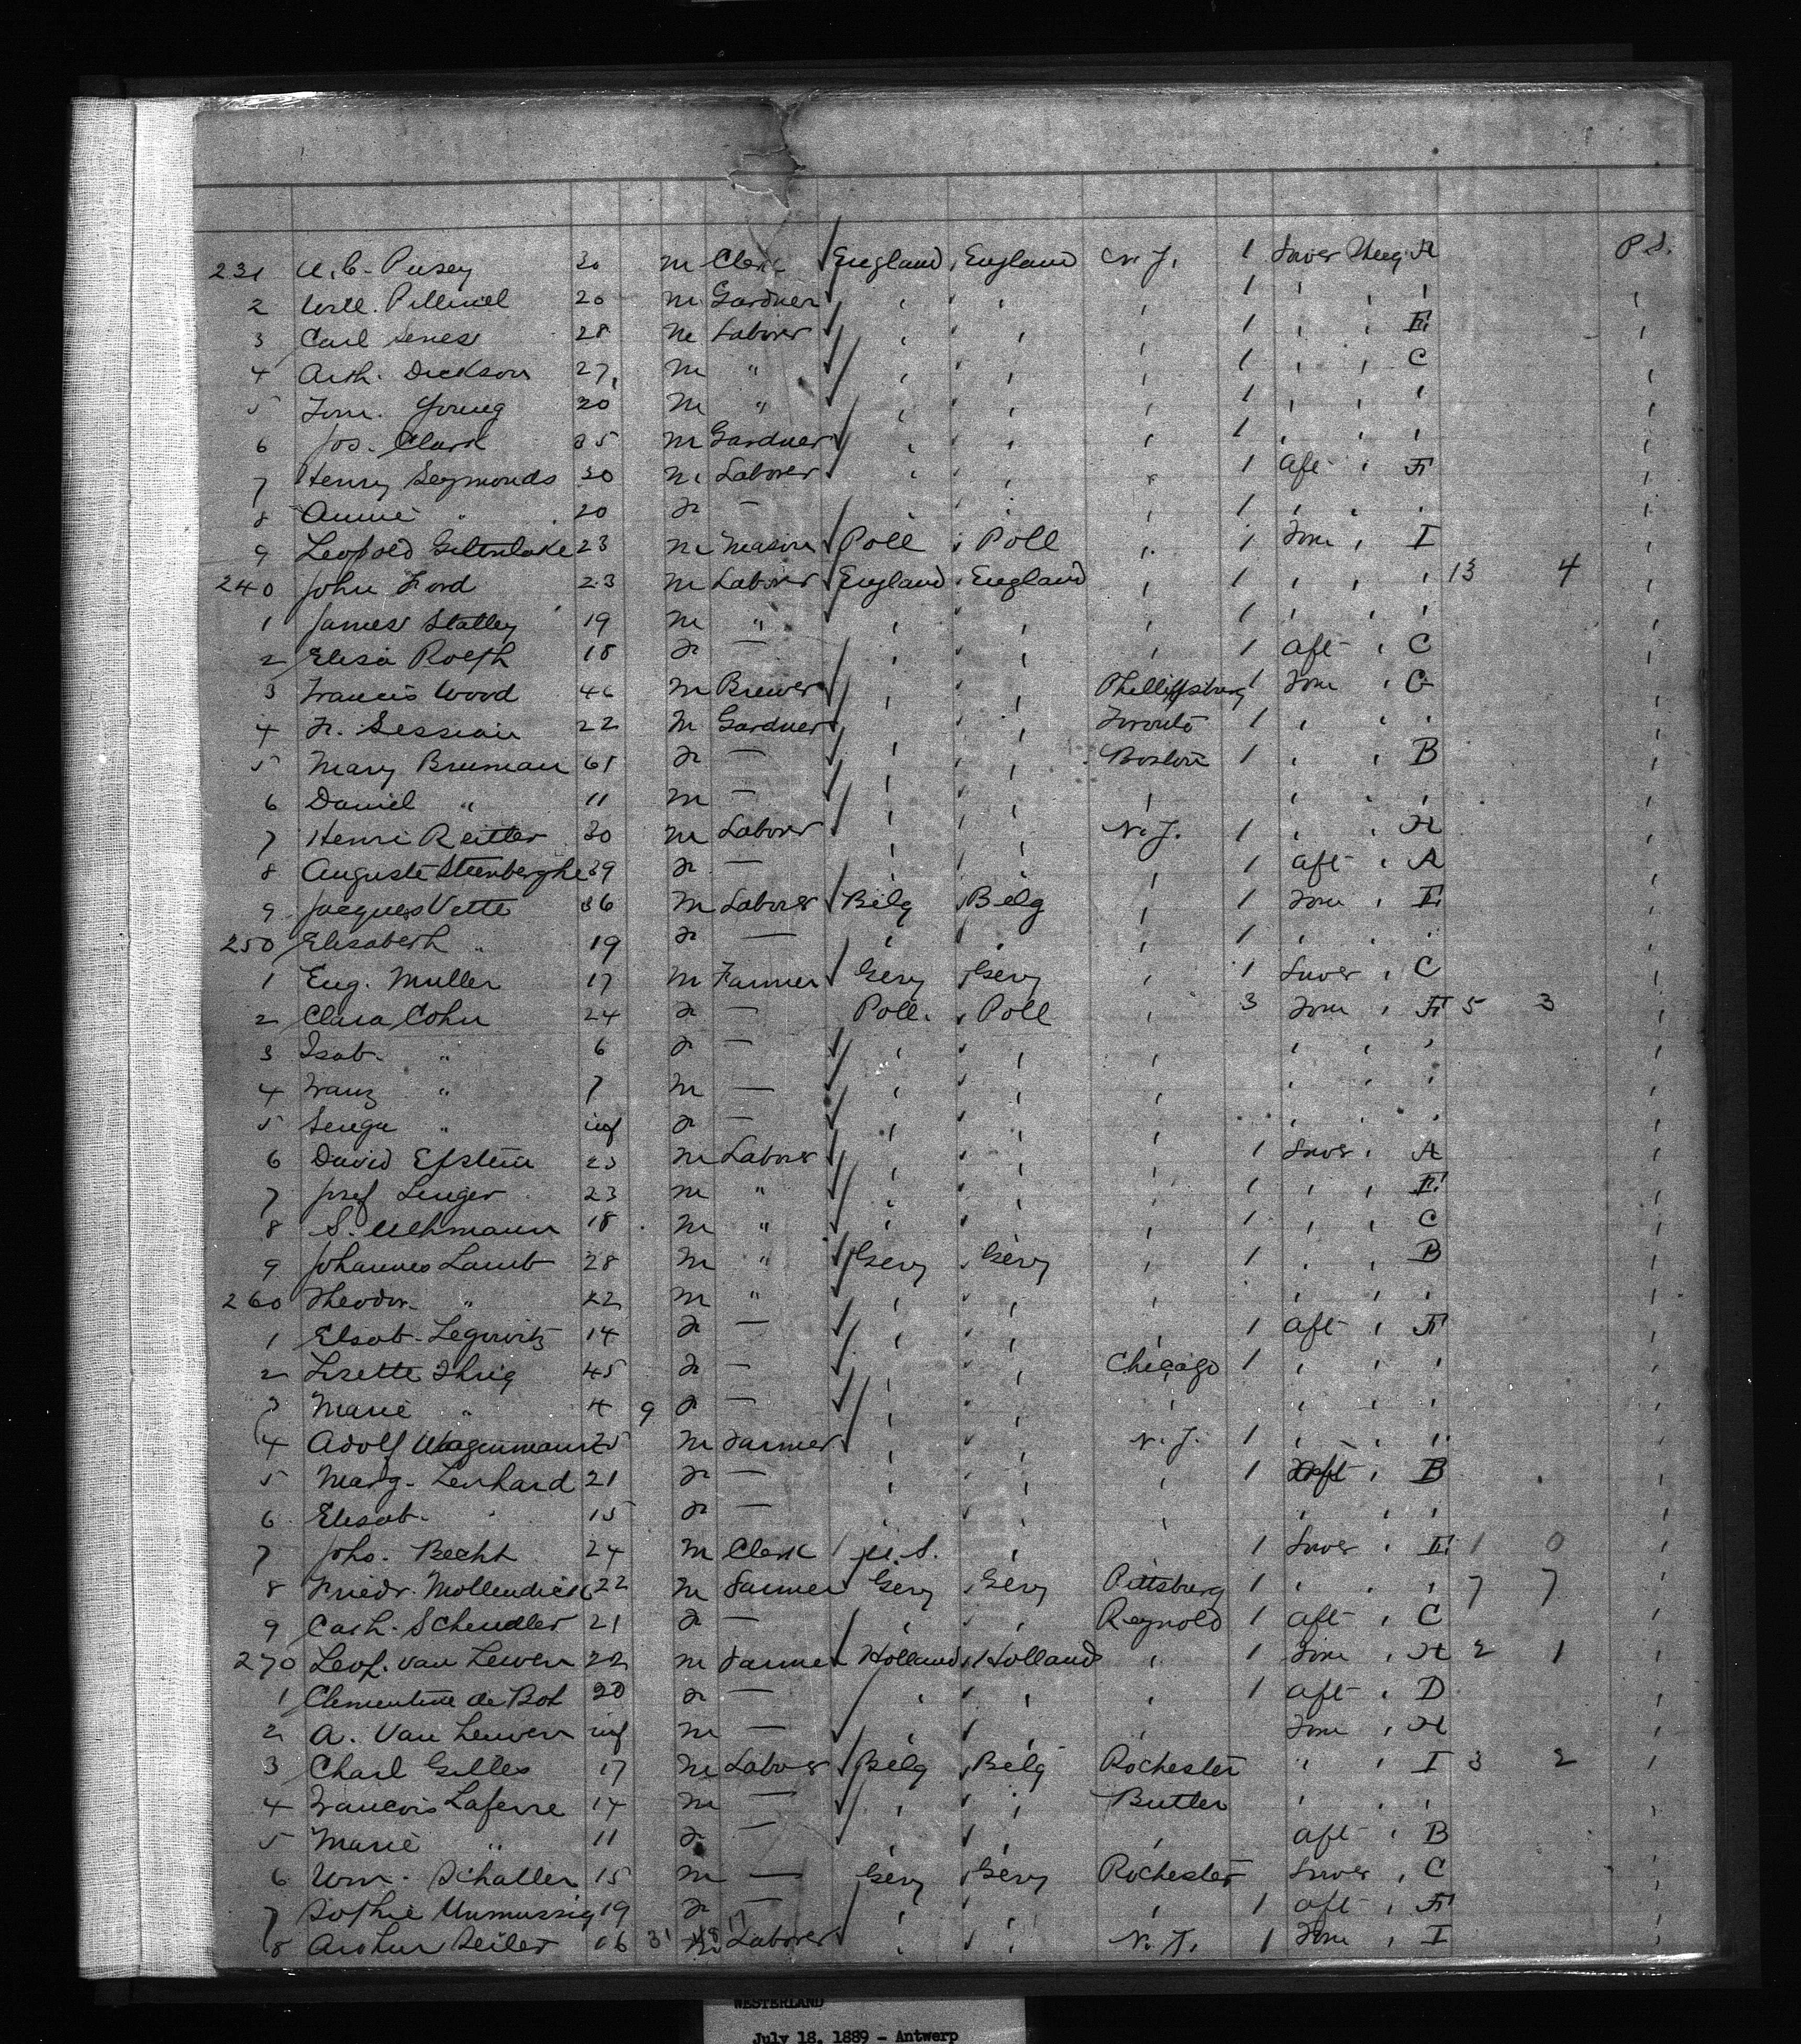 231 U.C. Pusey 30 m Clerk England England N.Y. 1 Lower Steeg A P.S.
2 Will. Pillmel 20 m Gardner ' ' ' 1 ' ' '
3 Carl Senes 28 m Laborer ' ' ' 1 ' ' E
4 Arth. Dickson 27 m " ' ' ' 1 ' ' C
5 Tom. Young 20 m " ' ' ' 1 ' ' '
6 Jos. Clark 35 m Gardner ' ' ' 1 ' ' '
7 Henry Seymonds 30 m Laborer ' ' ' 1 Aft ' F
8 Annie " 20 f ' ' ' 1 ' ' '
9 Leopold 23 m Mason Poll Poll ' 1 Fore ' I
240 John Ford 23 m Laborer England England ' 1 ' ' ' 13 4
1 James Statley 19 m " ' ' ' 1 ' ' '
2 Elisa Rolfh 18 f — ' ' ' 1 Aft ' C
3 Francis Wood 46 m Brewer ' ' Phillipsburg 1 Fore ' G
4 Fr. Sessian 22 m Gardner ' ' Toronto 1 ' ' '
5 Mary Bruman 61 f — ' ' Boston 1 ' ' B
6 Daniel " 11 m — ' ' ' ' ' '
7 Henri Reitter 30 m Laborer ' ' N.Y. 1 ' ' H
8 Auguste Steenberghe 39 f — ' ' ' 1 Aft ' A
9 Jacques Vette 36 m Laborer Belg Belg ' 1 Fore ' E
250 Elisabeth " 19 f — ' ' ' 1 ' ' '
1 Eug. Muller 17 m Farmer Gery Gery ' 1 Lower ' C
2 Clara Cohn 24 f — Poll. Poll ' 3 Fore ' F 5 3
3 Isab. " 6 f — ' ' ' ' ' '
4 Franz " 7 m — ' ' ' ' ' '
5 " inf f — ' ' ' ' ' '
6 David Epstein 23 m Laborer ' ' ' 1 Lower ' A
7 Josef Lenger 23 m " ' ' ' 1 ' ' E
8 S. Uehmann 18 m " ' ' ' 1 ' ' C
9 Johannes Lamb 28 m " Gery Gery ' 1 ' ' B
260 Theodor. " 22 m " ' ' ' ' ' '
1 Elsab. Legowitz 14 f — ' ' ' 1 Aft ' F
2 Lisette Ihrig 45 f — ' ' Chicago 1 ' ' '
3 Marie " 4 9 f — ' ' ' ' ' '
4 Adolf Wagenmann 25 m Farmer ' ' N.Y. 1 ' ' '
5 Marg. Lenhard 21 f — ' ' ' 1 Aft ' B
6 Elisab. ' 15 f — ' ' ' ' ' '
7 Joho. Becht 24 m Clerk U.S. ' ' 1 Lower ' E 1 0
8 Friedr. Mollendick 22 m Farmer Gery Gery Pittsburg 1 ' ' ' 7 7
9 Cath. Schendler 21 f — ' ' Reynold 1 Aft ' C
270 Leop. van Lewen 22 m Farmer Holland Holland " 1 Fore ' H 2 1
1 Clementine de Bot 20 f — ' ' ' 1 Aft ' D
2 A. Van Leuwen inf m — ' ' " Fore ' H
3 Charl Gilles 17 m Laborer Belg Belg Rochester " ' I 3 2
4 Francois Laferre 14 m — ' ' Butler ' ' '
5 Marie " 11 f — ' ' ' Aft ' B
6 Wm. Schaller 15 m — Gery Gery Rochester Lower ' C
7 Sothie Unmussig 19 f — ' ' ' 1 Aft ' F
8 Arthur Seiler 16 31 18 17 Laborer ' ' N.Y. 1 Fore ' I
WESTERLAND
July 18, 1889 - Antwerp